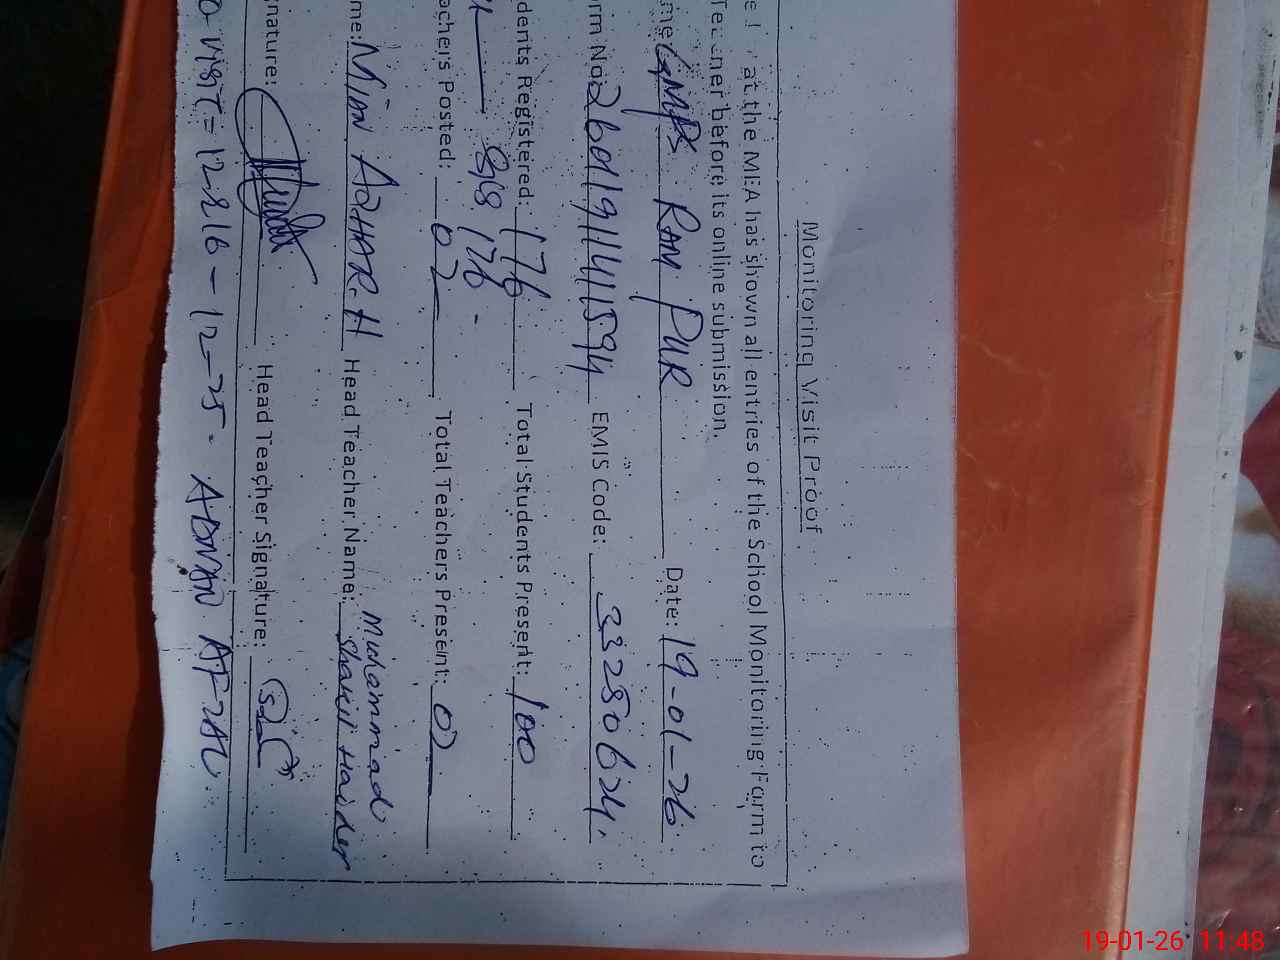 Monitoring Visit Proof
at the MEA has shown all entries of the School Monitoring Form to
Teacher before its online submission.
me GMPS RAM PUR Date: 19-01-26
orm No. 2601914111594 EMIS Code: 33280624.
dents Registered: 176 Total Students Present: 100
176 -
achers Posted: 02 Total Teachers Present: 02
me: MIAN AZHAR.H Head Teacher Name: Muhammad Shakil Haider
gnature: Head Teacher Signature:
VISIT = 12216 - 12-25. ADNAN AFZAL
19-01-26 11:48